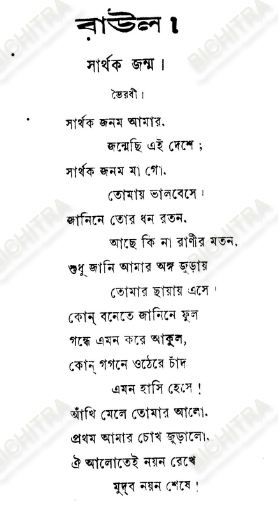 রাউল।
সার্থক জন্ম।
ভৈরবী।
সার্থক জনম আমার,
জন্মেছি এই দেশে;
সার্থক জনম মা গো,
তোমায় ভালবেসে।
জানিনে তোর ধন রতন,
আছে কি না রাণীর মতন,
শুধু জানি আমার অঙ্গ জুড়ায়
তোমার ছায়ায় এসে।
কোন্ বনেতে জানিনে ফুল
গন্ধে এমন করে আকুল,
কোন্ গগনে ওঠেরে চাঁদ
এমন হাসি হেসে!
আঁখি মেলে তোমার আলো,
প্রথম আমার চোখ জুড়ালো,
ঐ আলোতেই নয়ন রেখে
মুদ্‌ব নয়ন শেষে!
BICHITRA
BICHITRA
BICHITRA
BICHITRA
BICHITRA
BICHITRA